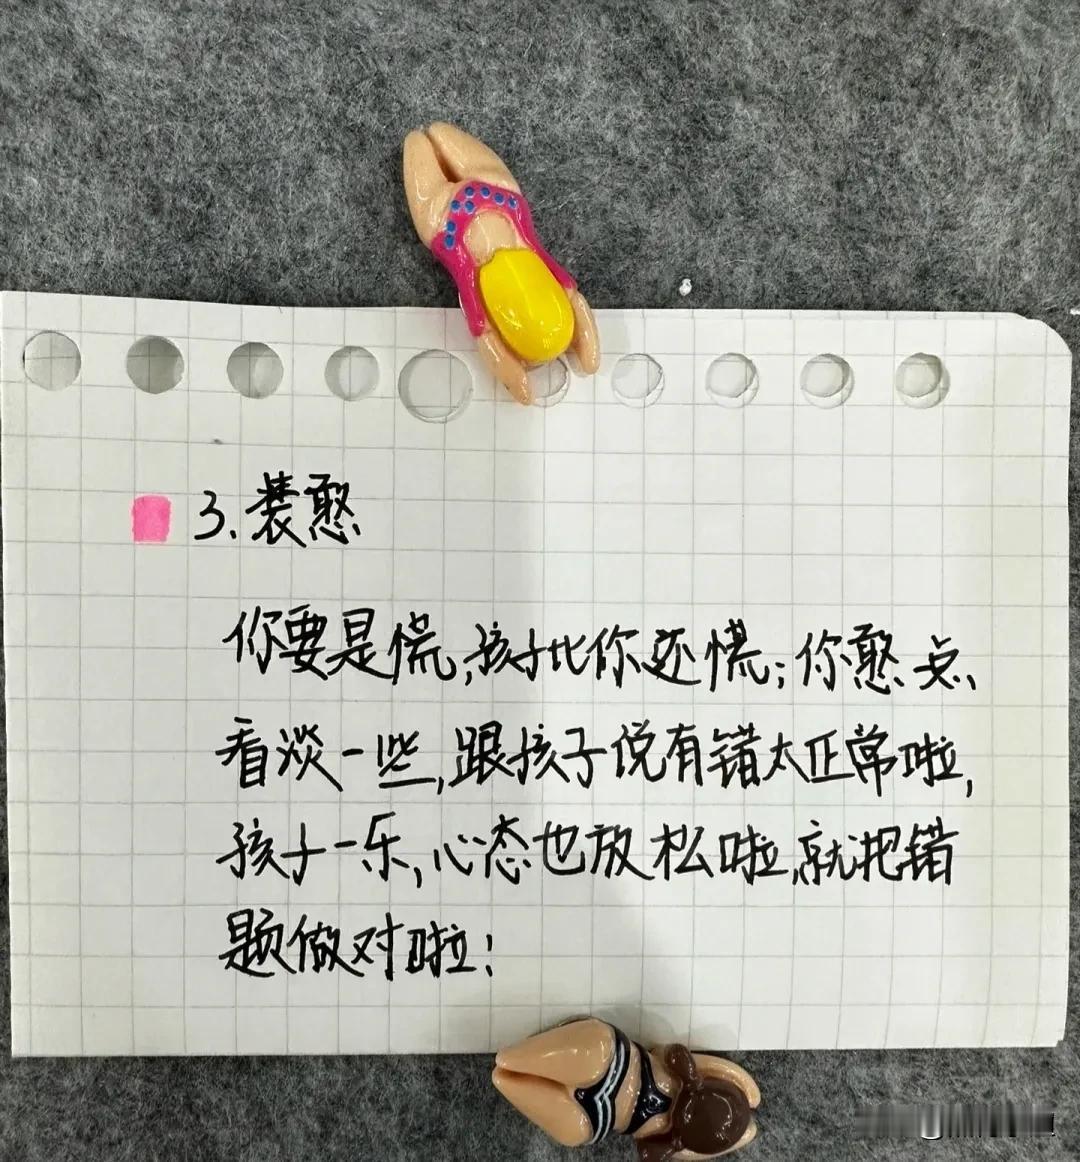 3.装憨
你要是慌,孩子比你还慌;你憨点、
看淡一些,跟孩子说有错太正常啦,
孩子一乐,心态也放松啦,就把错
题做对啦!